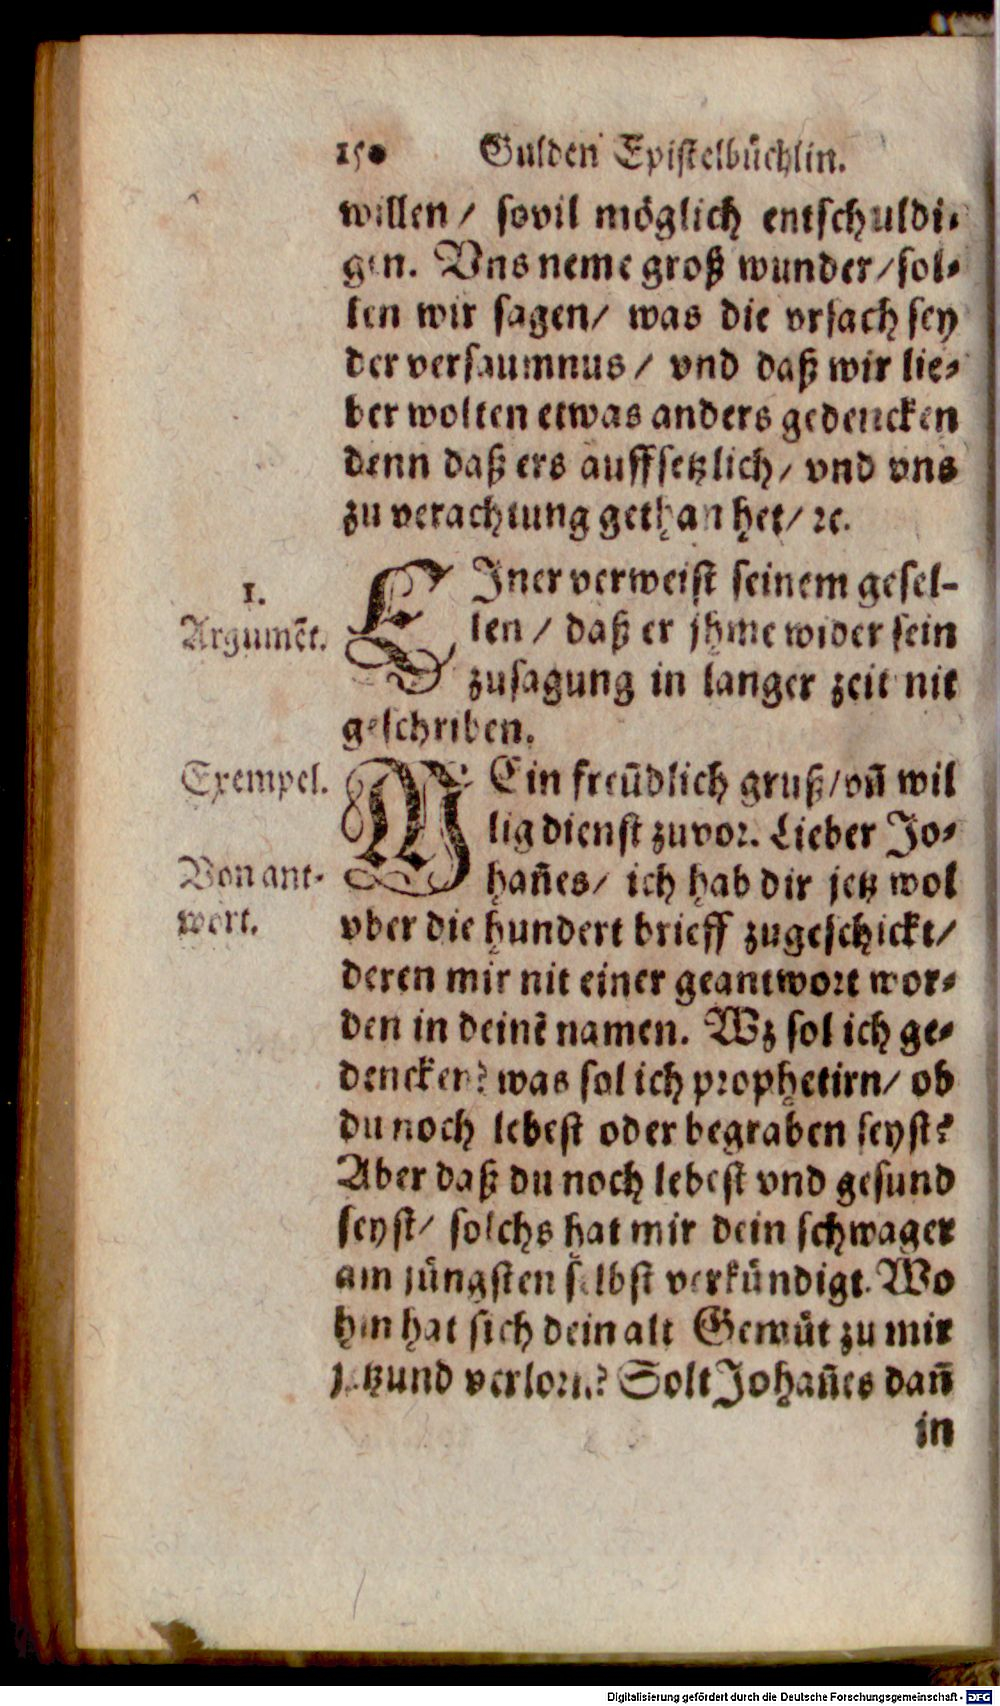 150 Gulden Epistelbüchlin.
willen / sovil möglich entschuldi-
gen. Vns neme groß wunder / sol-
len wir sagen / was die vrsach sey
der versaumnus / vnd daß wir lie-
ber wolten etwas anders gedencken
denn daß ers auffsetzlich / vnd vns
zu verachtung gethan het / ꝛc.
1.
Argumēt.
EIner verweist seinem gesel-
len / daß er jhme wider sein
zusagung in langer zeit nit
geschriben.
Exempel.
MEin freūdlich gruß / vn̄ wil
lig dienst zuvor. Lieber Jo-
Von ant-
wort.
han̄es / ich hab dir jetz wol
vber die hundert brieff zugeschickt /
deren mir nit einer geantwort wor-
den in deinē namen. Wz sol ich ge-
dencken? was sol ich prophetirn / ob
du noch lebest oder begraben seyst?
Aber daß du noch lebest vnd gesund
seyst / solchs hat mir dein schwager
am jüngsten selbst verkündigt. Wo
hin hat sich dein alt Gemüt zu mir
jetzund verlorn? Solt Johan̄es dan̄
in
Digitalisierung gefördert durch die Deutsche Forschungsgemeinschaft - DFG